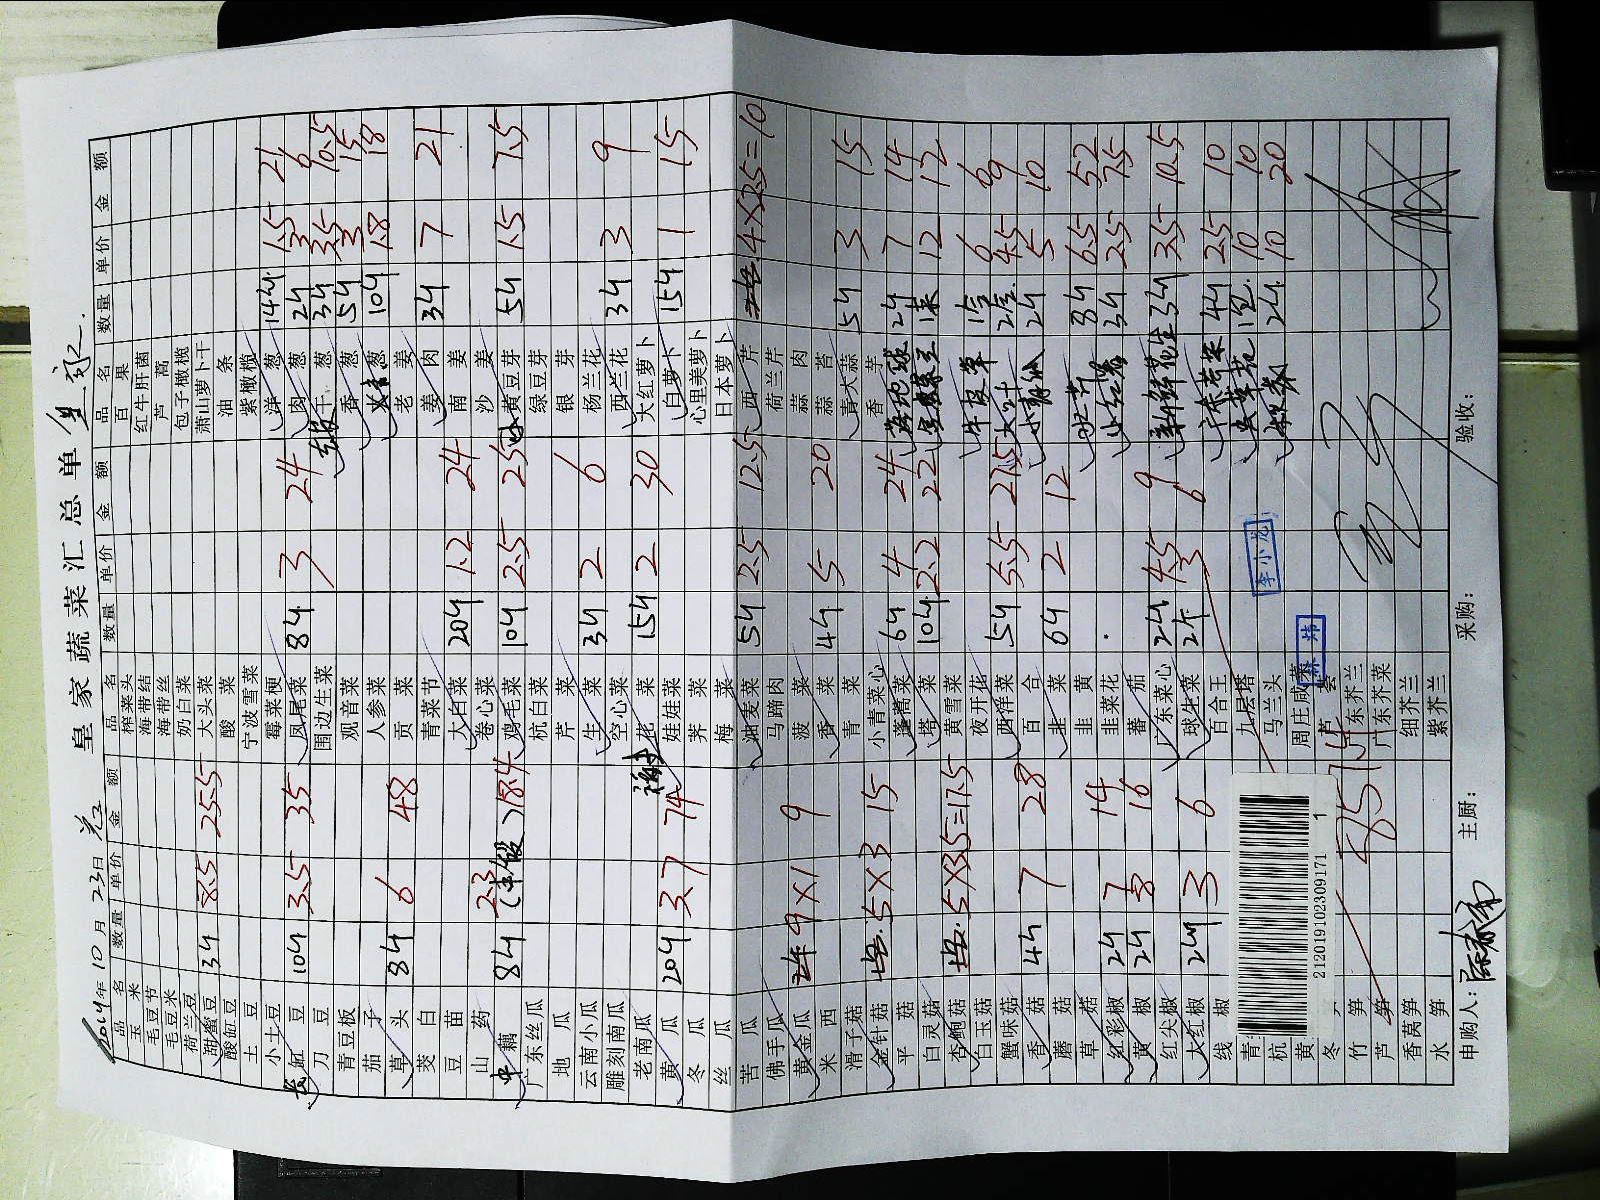 皇家蔬菜汇总单
2014年10月23日
品名 数量 单价 金额 品名 数量 单价 金额 品名 数量 单价 金额
玉米 榨菜头 百果
毛豆节 海带结 红牛肝菌
毛豆米 海带丝 芦蒿
荷兰豆 奶白菜 包子橄榄
甜蜜豆 3斤 8.5 25.5 大头菜 萧山萝卜干
酸缸豆 酸菜 油条
土豆 宁波雪菜 紫橄榄
小土豆 霉菜梗 洋葱 14斤 1.5 21
缸豆 10斤 3.5 35 凤尾菜 8斤 3 24 肉葱 2斤 3 6
刀豆 围边生菜 干葱 3斤 3.5 10.5
青豆板 观音菜 香葱 5斤 3 15
茄子 人参菜 葱 10斤 1.8 18
草头 8斤 6 48 贡菜 老姜
茭白 青菜节 姜肉 3斤 7 21
豆苗 大白菜 20斤 1.2 24 南姜
山药 卷心菜 沙姜
藕 8斤 2.3 18.4 鸡毛菜 10斤 2.5 25 黄豆芽 5斤 1.5 7.5
广东丝瓜 杭白菜 绿豆芽
地瓜 芹菜 银芽
云南小瓜 生菜 3斤 2 6 杨兰花
雕刻南瓜 空心菜 西兰花 3斤 3 9
老南瓜 花菜 15斤 2 30 大红萝卜
黄瓜 20斤 3.7 74 娃娃菜 白萝卜 15斤 1 15
冬瓜 荠菜 心里美萝卜
丝瓜 梅菜 日本萝卜
苦瓜 油麦菜 5斤 2.5 12.5 西芹 4×2.5=10
佛手瓜 马蹄肉 荷兰芹
黄金瓜 9×1 9 菠菜 蒜肉
米西 香菜 4斤 5 20 蒜苔
滑子菇 青菜 青大蒜 5斤 3 15
金针菇 5×3 15 小青菜心 香芋
平菇 蓬蒿菜 6斤 4 24 2斤 7 14
白灵菇 塔菜 10斤 2.2 22 12 12
杏鲍菇 5×3.5=17.5 黄雪菜
白玉菇 夜开花 牛皮 6 6
蟹味菇 西洋菜 5斤 5.5 27.5 4.5 9
香菇 4斤 7 28 百合 2斤 5 10
蘑菇 韭菜 6斤 2 12
草菇 韭黄 8斤 6.5 52
红彩椒 2斤 7 14 韭菜花 3斤 2.5 7.5
黄椒 2斤 8 16 蕃茄
红尖椒 广东菜心 2斤 4.5 9 新鲜花生 3斤 3.5 10.5
大红椒 2斤 3 6 球生菜 2个 3 6
线椒 百合王 4斤 2.5 10
九层塔 1包 10 10
杭 马兰头 2斤 10 20
黄 周庄咸菜
冬
竹笋 广东芥兰
芦笋 广东芥菜
香莴笋 细芥兰
水笋 紫芥兰
李小龙
212019102309171 1
申购人： 主厨： 采购： 验收：